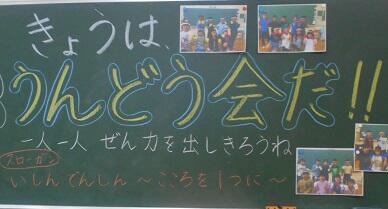 きょうは、
うんどう会だ!!
一人一人 ぜん力を出しきろうね
スローガン
いしんでんしん ～こころを1つに～